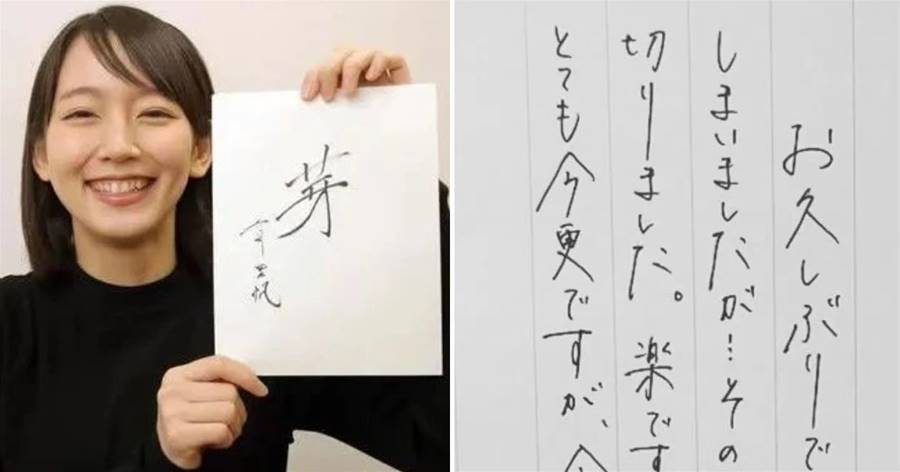 芽
里帆
お久しぶりで
しまいましたが…その
切りました。楽です
とても今更ですが、